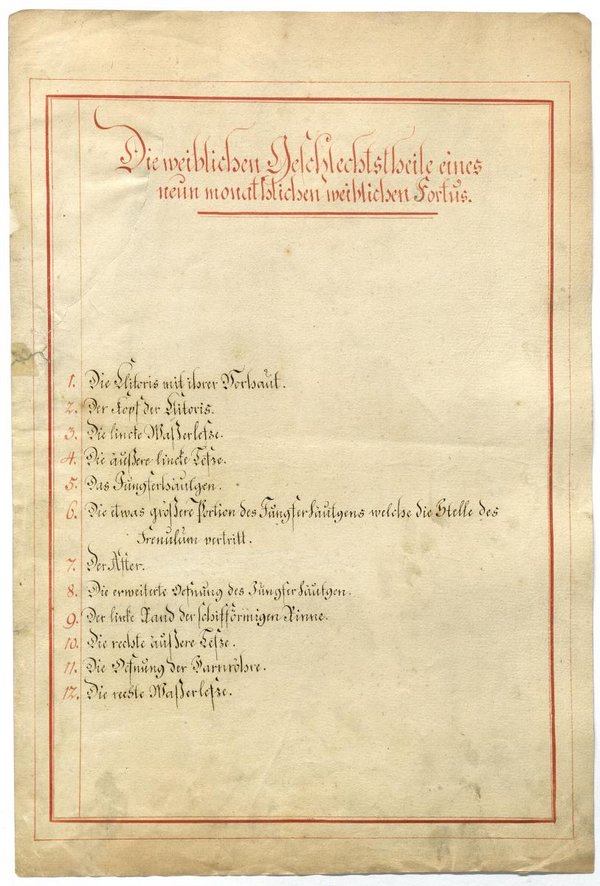 Die weiblichen Geschlechtstheile eines
neun monathlichen weiblichen Foetus.
1. Die Klitoris mit ihrer Vorhaut.
2. Der Kopf der Klitoris.
3. Die lincke Waßerlefze.
4. Die äußere lincke Lefze.
5. Das Jungferhäutgen.
6. Die etwas größere Portion des Jungferhäutgens welche die Stelle des
Frenulum vertritt.
7. Der After.
8. Die erweiterte Oefnung des Jungferhäutgen.
9. Der linke Rand der schifförmigen Rinne.
10. Die rechte äußere Lefze.
11. Die Oefnung der Harnröhre.
12. Die rechte Waßerlefze.